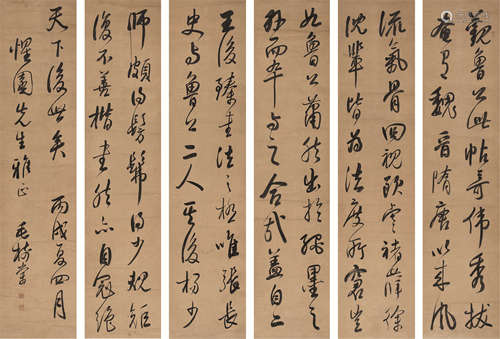 觀魯公此帖奇偉秀拔
奄有魏晉隋唐以來風
流氣骨回視歐虞褚薛徐
沈輩皆為法度所窘豈
如魯公蕭然出於繩墨之
外而卒與之合哉蓋自二
王後臻書法之極唯張長
史與魯公二人其後楊少
師頗得髣髴但少規矩
復不善楷書然亦自冠絕
天下後世矣 丙戌夏四月
惺園先生雅正 毛樹棠